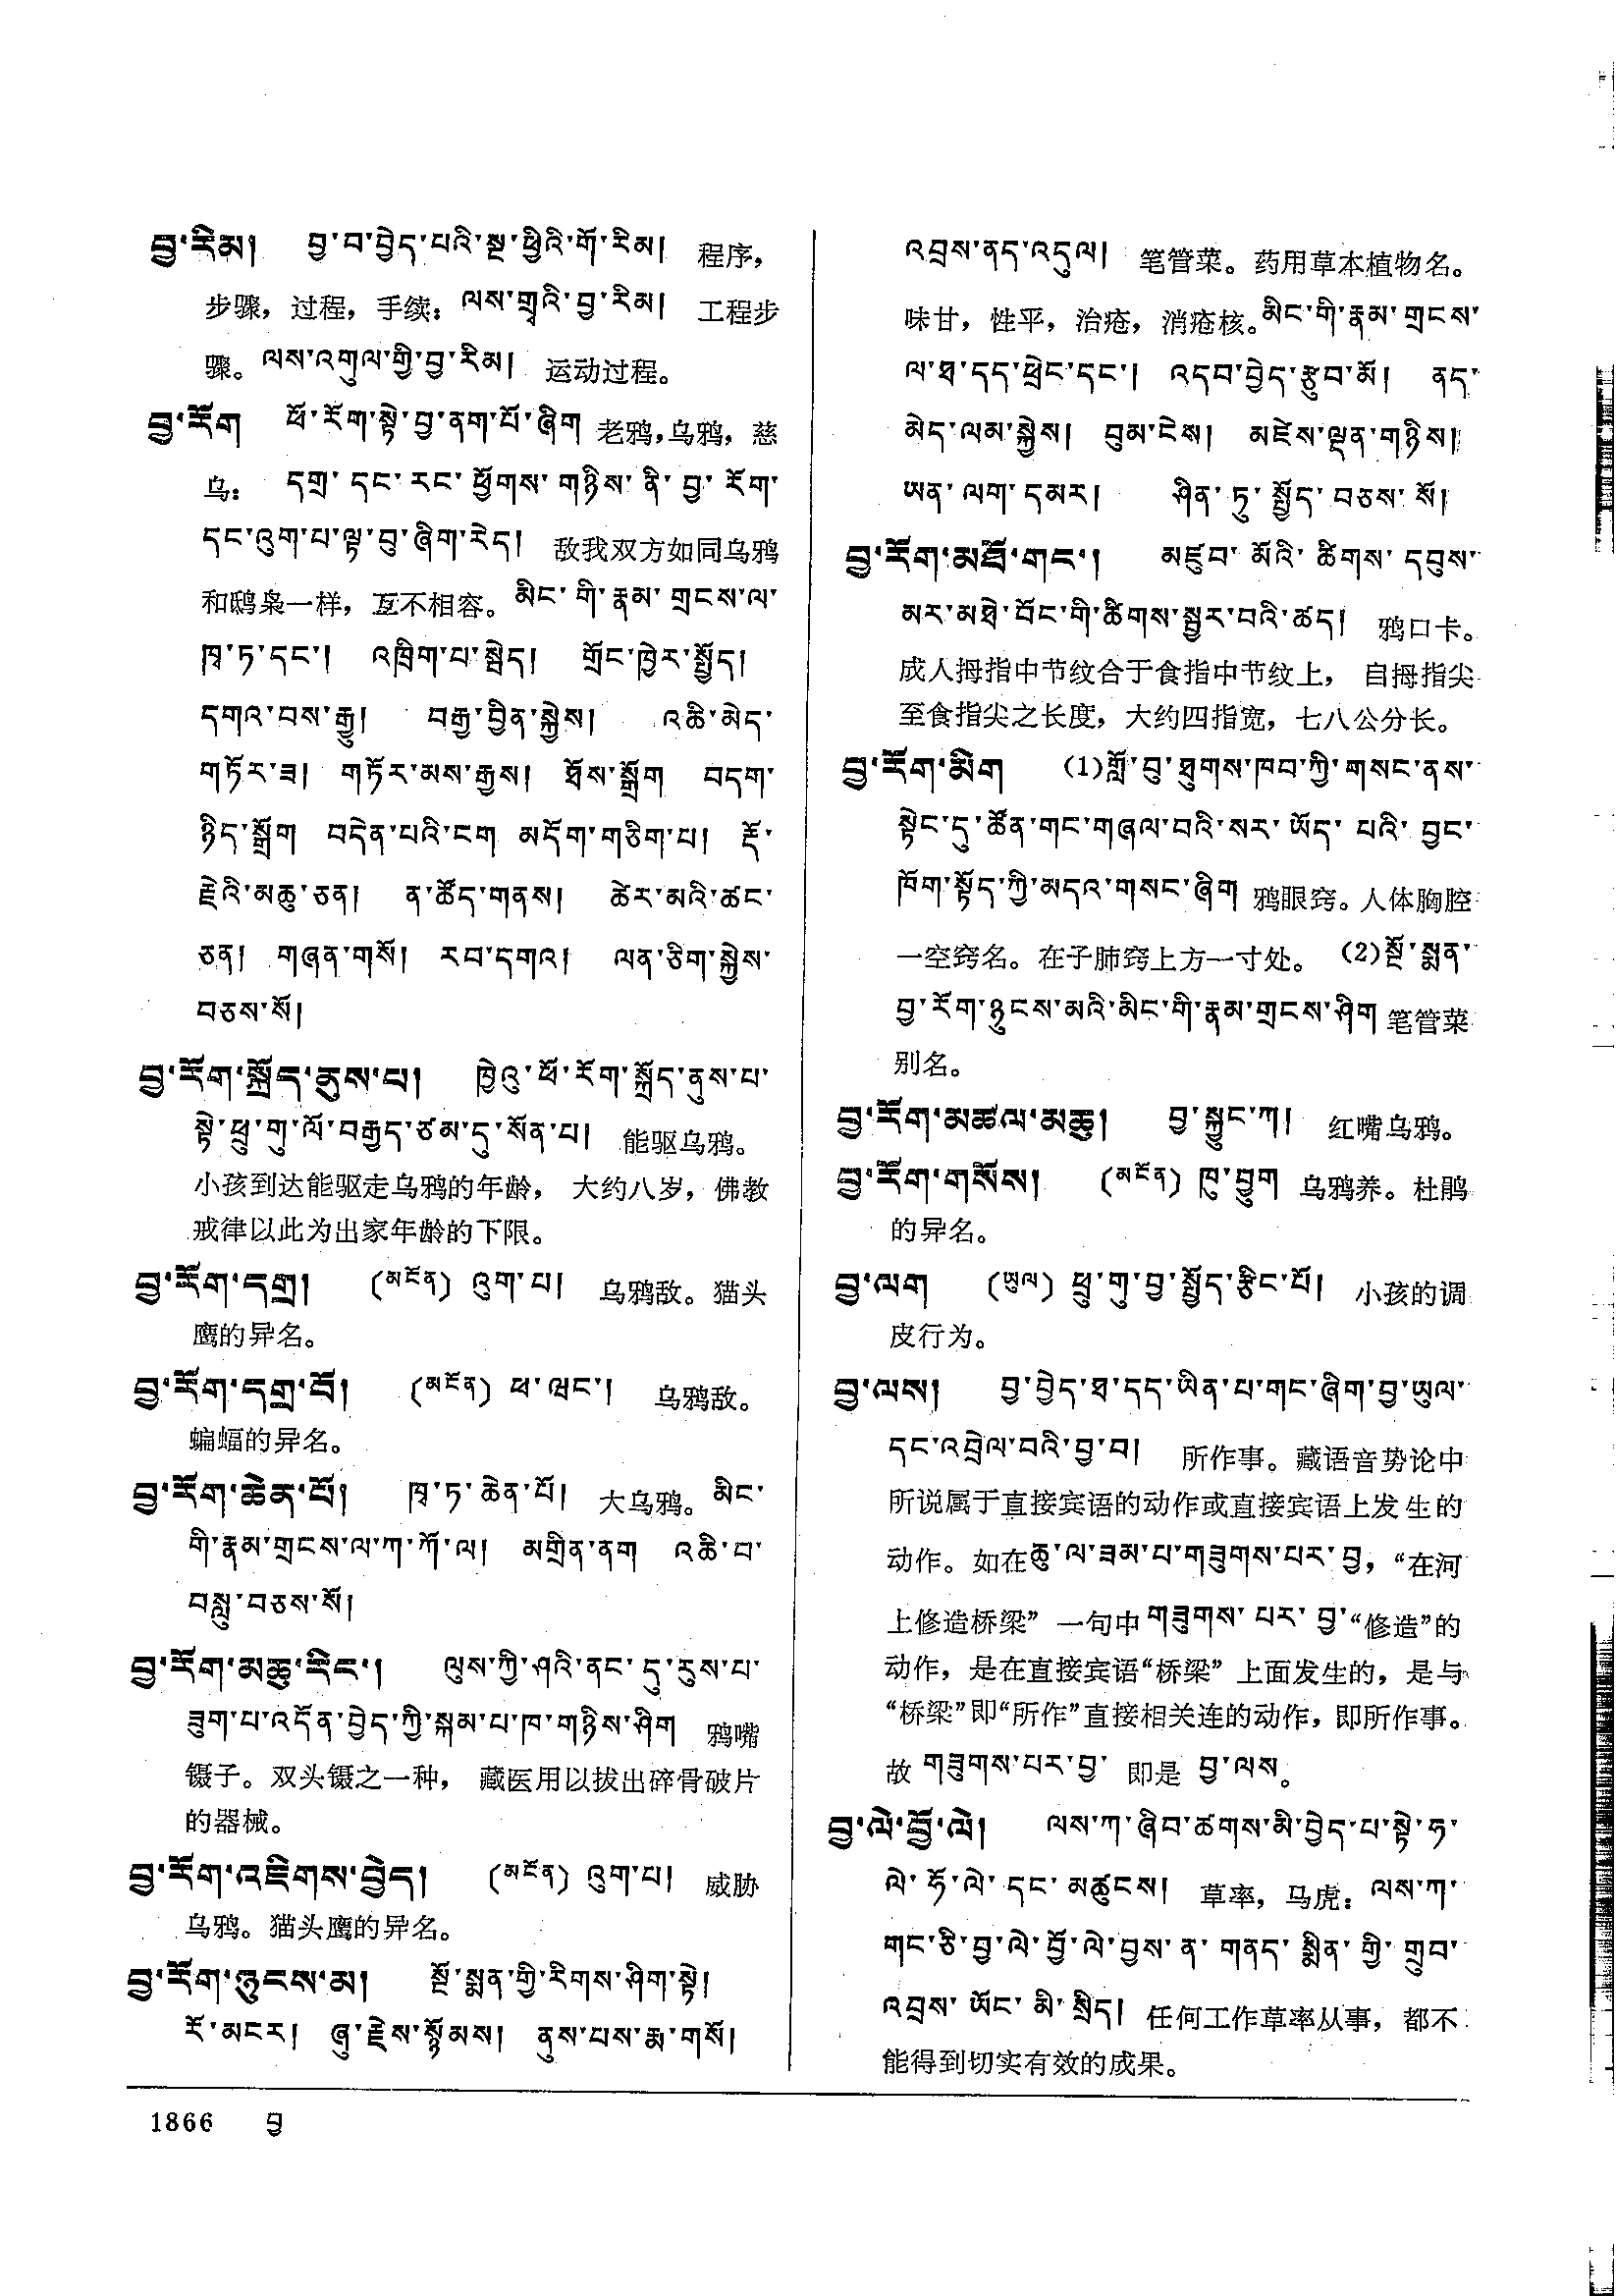 བྱ་རིམ། བྱ་བ་བྱེད་པའི་སྔ་ཕྱིའི་གོ་རིམ། 程序，
步骤，过程，手续：ལས་གྲྭའི་བྱ་རིམ། 工程步
骤。ལས་འགུལ་གྱི་བྱ་རིམ། 运动过程。
བྱ་རོག ཕོ་རོག་སྟེ་བྱ་ནག་པོ་ཞིག 老鸦，乌鸦，慈
乌：དགྲ་དང་རང་ཕྱོགས་གཉིས་ནི་བྱ་རོག་
དང་འུག་པ་ལྟ་བུ་ཞིག་རེད། 敌我双方如同乌鸦
和鸱枭一样，互不相容。མིང་གི་རྣམ་གྲངས་ལ་
ཁྭ་ཏ་དང་། འཁྲིག་པ་སྦེད། གྲོང་ཁྱེར་སྤྱོད།
དགའ་བས་རྒྱུ། བརྒྱ་བྱིན་སྐྱེས། འཆི་མེད་
གཏོར་ཟ། གཏོར་མས་རྒྱས། ཐོས་སྒྲོག བདག་
ཉིད་སྒྲོག བདེན་པའི་ངག མདོག་གཅིག་པ། རྡོ་
རྗེའི་མཆུ་ཅན། ན་ཚོད་གནས། ཚེར་མའི་ཚང་
ཅན། གཞན་གསོ། རབ་དགའ། ལན་ཅིག་སྐྱེས་
བཅས་སོ།
བྱ་རོག་སྐྲོད་ནུས་པ། ཁྱེའུ་ཕོ་རོག་སྐྲོད་ནུས་པ་
སྟེ་ཕྲུ་གུ་ལོ་བརྒྱད་ཙམ་དུ་སོན་པ། 能驱乌鸦。
小孩到达能驱走乌鸦的年龄，大约八岁，佛教
戒律以此为出家年龄的下限。
བྱ་རོག་དགྲ། (མངོན) འུག་པ། 乌鸦敌。猫头
鹰的异名。
བྱ་རོག་དགྲ་བོ། (མངོན) ཕ་ཝང་། 乌鸦敌。
蝙蝠的异名。
བྱ་རོག་ཆེན་པོ། ཁྭ་ཏ་ཆེན་པོ། 大乌鸦。མིང་
གི་རྣམ་གྲངས་ལ་ཀ་ཀོ་ལ། མགྲིན་ནག འཆི་བ་
བསླུ་བཅས་སོ།
བྱ་རོག་མཆུ་རིང་། ལུས་ཀྱི་ཤའི་ནང་དུ་རུས་པ་
ཟུག་པ་འདོན་བྱེད་ཀྱི་སྐམ་པ་ཁ་གཉིས་ཤིག 鸦嘴
镊子。双头镊之一种，藏医用以拔出碎骨破片
的器械。
བྱ་རོག་འཇིགས་བྱེད། (མངོན) འུག་པ། 威胁
乌鸦。猫头鹰的异名。
བྱ་རོག་ཉུངས་མ། སྔོ་སྨན་གྱི་རིགས་ཤིག་སྟེ།
རོ་མངར། ཞུ་རྗེས་སྙོམས། ནུས་པས་རྨ་གསོ།
འབྲས་ནད་འདུལ། 笔管菜。药用草本植物名。
味甘，性平，治疮，消疮核。མིང་གི་རྣམ་གྲངས་
ལ་ཐ་དད་ཕྲེང་དང་། འདབ་བྱེད་རྩུབ་མོ། ནད་
མེད་ལམ་སྐྱེས། བུམ་ངེས། མཛེས་ལྡན་གཉིས།
ཡན་ལག་དམར། ཤིན་ཏུ་སྤྱོད་བཅས་སོ།
བྱ་རོག་མཐོ་གང་། མཛུབ་མོའི་ཚིགས་དབུས་
མར་མཐེ་བོང་གི་ཚིགས་སྦྱར་བའི་ཚད། 鸦口卡。
成人拇指中节纹合于食指中节纹上，自拇指尖
至食指尖之长度，大约四指宽，七八公分长。
བྱ་རོག་མིག (1)གློ་བུ་ཐུགས་ཁབ་ཀྱི་གསང་ནས་
སྟེང་དུ་ཚོན་གང་གཞལ་བའི་སར་ཡོད་པའི་བྱང་
ཁོག་སྟོད་ཀྱི་མདའ་གསང་ཞིག 鸦眼窍。人体胸腔
一空窍名。在子肺窍上方一寸处。(2)སྔོ་སྨན་
བྱ་རོག་ཉུངས་མའི་མིང་གི་རྣམ་གྲངས་ཤིག 笔管菜
别名。
བྱ་རོག་མཚལ་མཆུ། བྱ་སྐྱུང་ཀ། 红嘴乌鸦。
བྱ་རོག་གསོས། (མངོན) ཁུ་བྱུག 乌鸦养。杜鹃
的异名。
བྱ་ལག (ཡུལ) ཕྲུ་གུ་བྱ་སྤྱོད་རྩིང་པོ། 小孩的调
皮行为。
བྱ་ལས། བྱ་བྱེད་ཐ་དད་ཡིན་པ་གང་ཞིག་བྱ་ཡུལ་
དང་འབྲེལ་བའི་བྱ་བ། 所作事。藏语音势论中
所说属于直接宾语的动作或直接宾语上发生的
动作。如在ཆུ་ལ་ཟམ་པ་གཟུགས་པར་བྱ，“在河
上修造桥梁”一句中གཟུགས་པར་བྱ་“修造”的
动作，是在直接宾语“桥梁”上面发生的，是与
“桥梁”即“所作”直接相关连的动作，即所作事。
故གཟུགས་པར་བྱ་即是བྱ་ལས。
བྱ་ལེ་བྱོ་ལེ། ལས་ཀ་ཞིབ་ཚགས་མི་བྱེད་པ་སྟེ་ཧ་
ལེ་ཧོ་ལེ་དང་མཚུངས། 草率，马虎：ལས་ཀ་
གང་ཅི་བྱ་ལེ་བྱོ་ལེ་བྱས་ན་གནད་སྨིན་གྱི་གྲུབ་
འབྲས་ཡོང་མི་སྲིད། 任何工作草率从事，都不
能得到切实有效的成果。
1866 བྱ